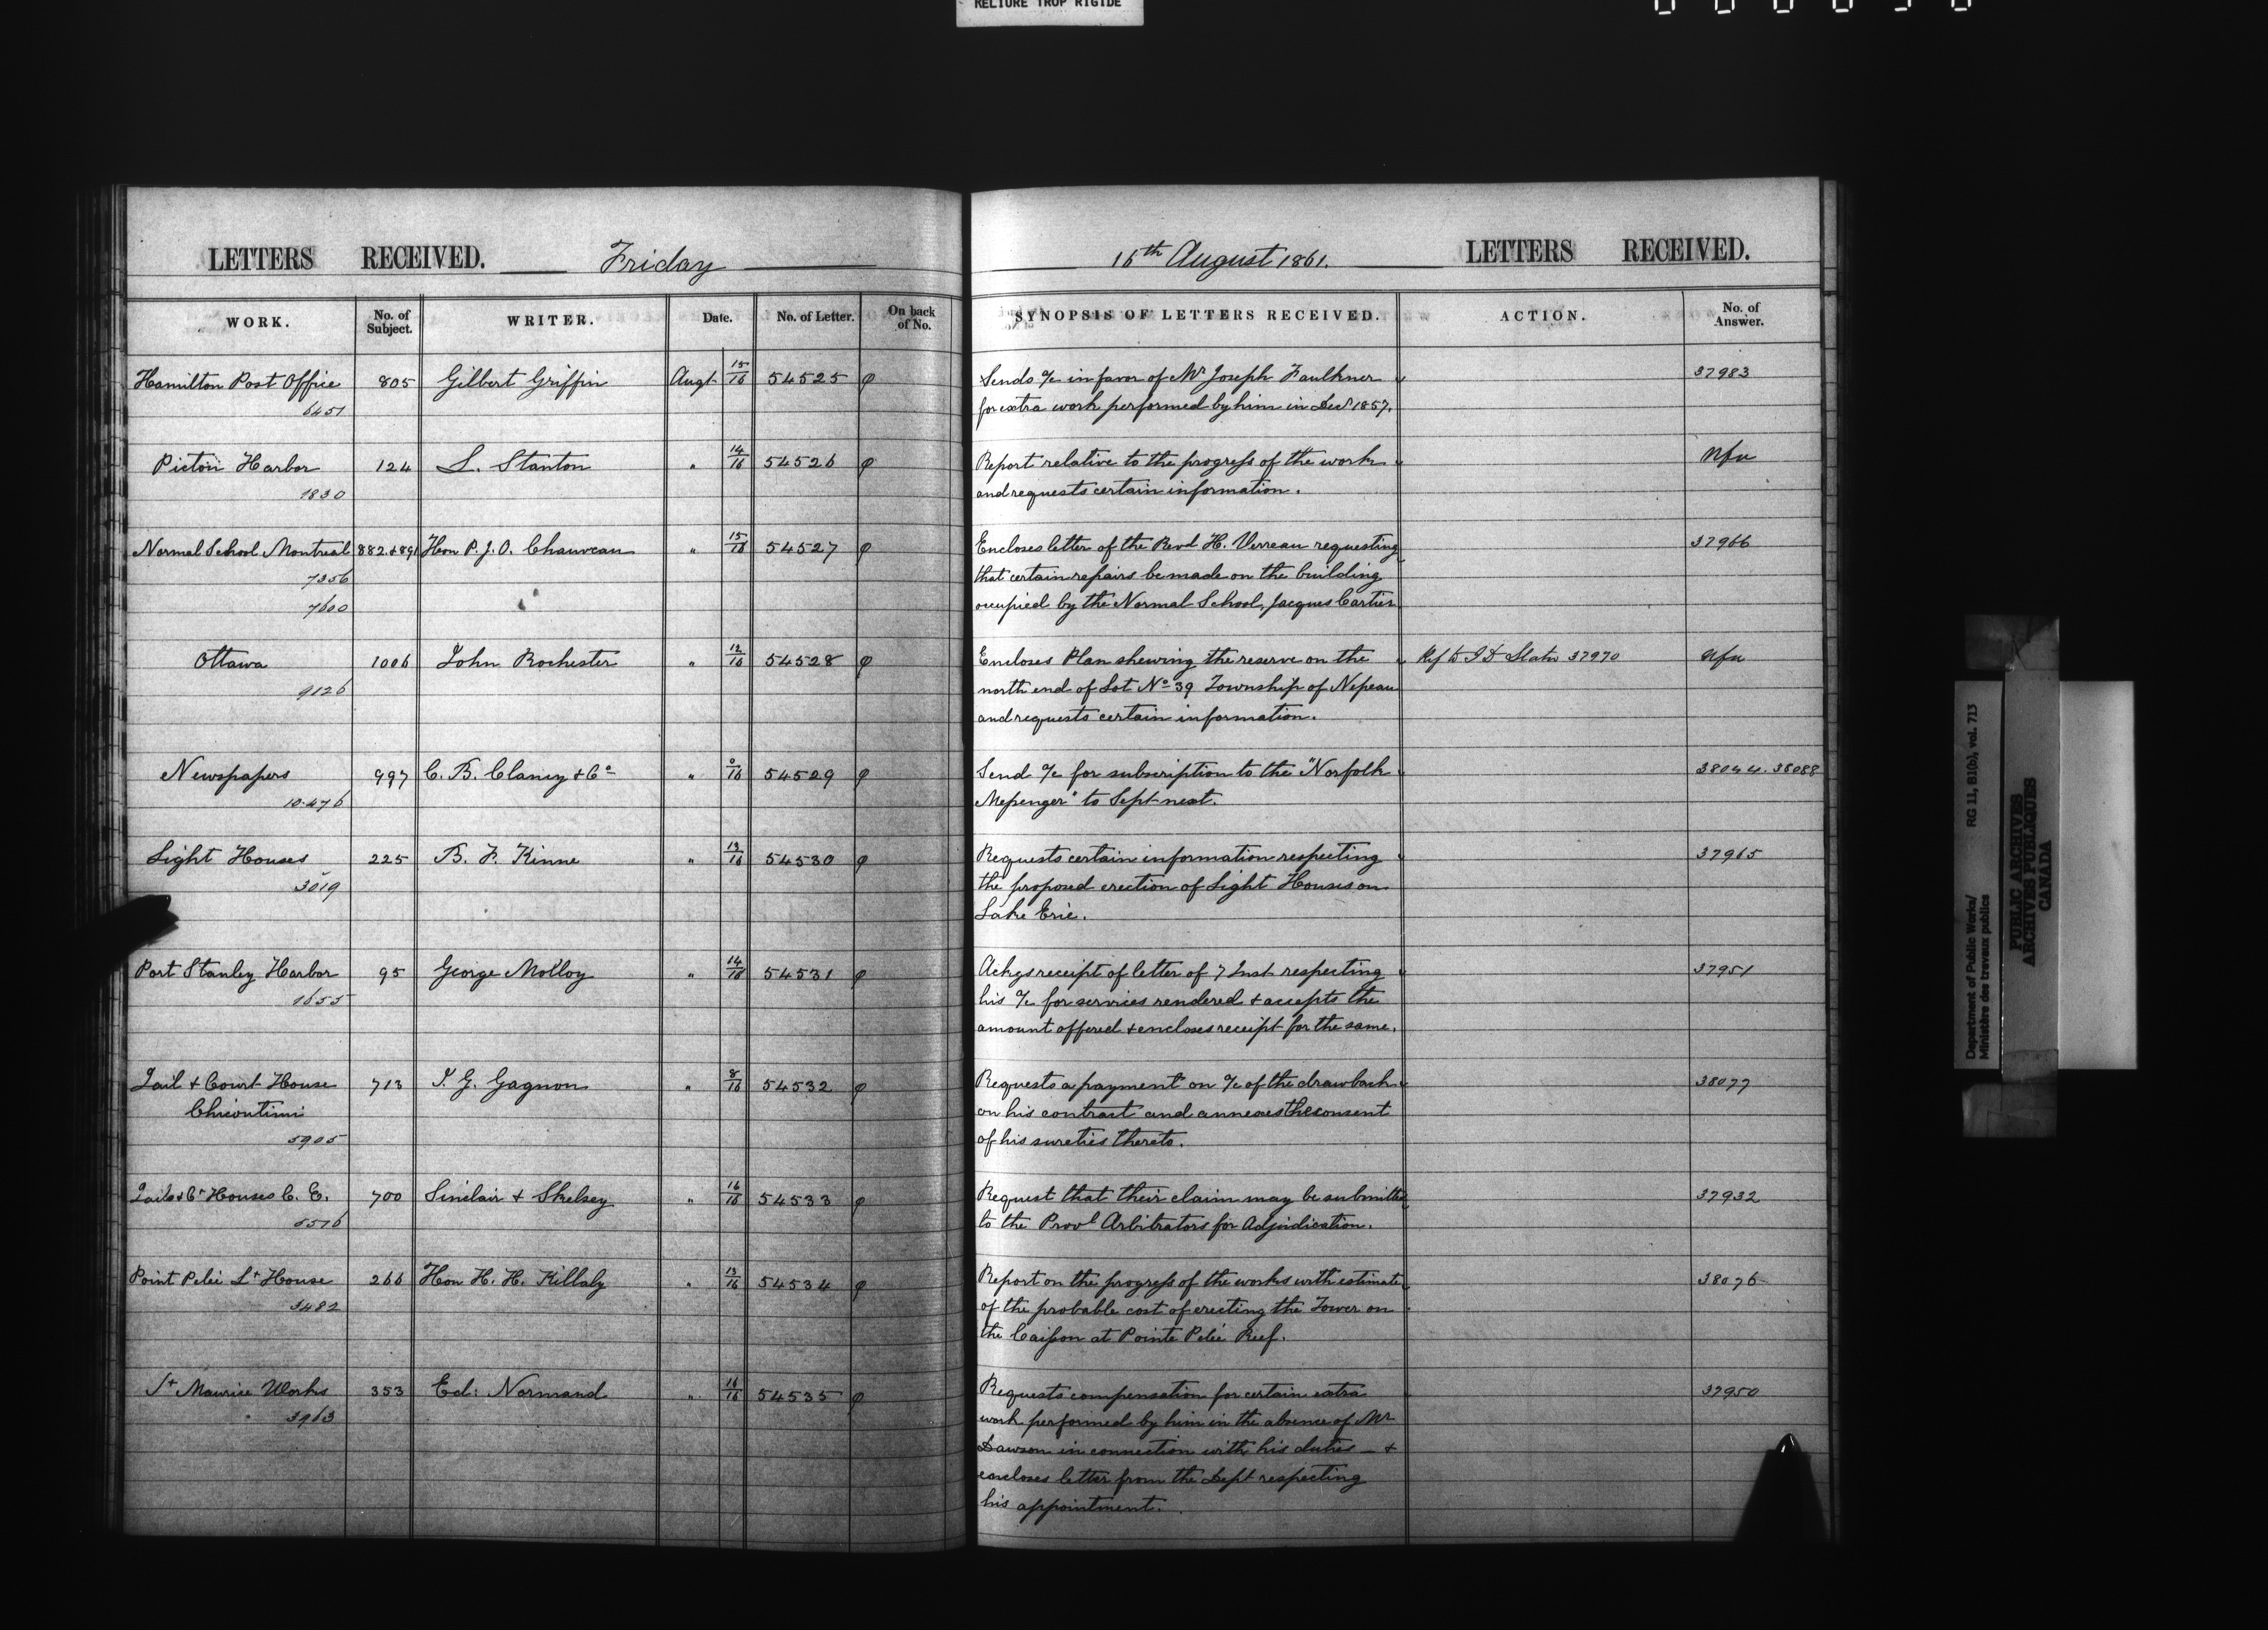 RELIURE TROP RIGIDE
LETTERS RECEIVED. Friday
WORK. No. of Subject. WRITER. Date. No. of Letter. On back of No.
Hamilton Post Office 805 Gilbert Griffin Augt 15/16 54525 φ
6451
Picton Harbor 124 S. Stanton " 14/16 54526 φ
1830
Normal School Montreal 882 & 891 Hon P. J. O. Chauveau " 15/16 54527 φ
7356
7600
Ottawa 1006 John Rochester " 12/16 54528 φ
9126
Newspapers 997 C. B. Clancy & Co " 0/16 54529 φ
10.476
Light Houses 225 B. F. Kinne " 13/16 54530 φ
3019
Port Stanley Harbor 95 George Molloy " 14/16 54531 φ
1655
Jail & Court House 713 J. G. Gagnon " 8/16 54532 φ
Chicoutimi
5905
Jails & Ct Houses C. E. 700 Sinclair & Skelsey " 16/16 54533 φ
5516
Point Pelée Lt House 266 Hon H. H. Killaly " 13/16 54534 φ
3482
St Maurice Works 353 Ed: Normand " 16/16 54535 φ
3963
16th August 1861. LETTERS RECEIVED.
SYNOPSIS OF LETTERS RECEIVED. ACTION. No. of Answer.
Sends a/c in favor of Mr Joseph Faulkner 37983
for extra work performed by him in Decr 1857.
Report relative to the progress of the works Nfa
and requests certain information.
Encloses letter of the Revd H. Verreau requesting 37966
that certain repairs be made on the building
occupied by the Normal School, Jacques Cartier
Encloses Plan shewing the reserve on the Ref to J D Slater 37970 Nfa
north end of Lot No 39 Township of Nepean
and requests certain information.
Send a/c for subscription to the "Norfolk 38044. 38088
Messenger" to Sept next.
Requests certain information respecting 37965
the proposed erection of Light Houses on
Lake Erie.
Ackgs receipt of letter of 7 Inst respecting 37951
his a/c for services rendered & accepts the
amount offered & encloses receipt for the same.
Requests a payment on a/c of the drawback 38077
on his contract and annexes the consent
of his sureties thereto.
Request that their claim may be submitted 37932
to the Provl Arbitrators for Adjudication.
Report on the progress of the works with estimate 38076
of the probable cost of erecting the Tower on
the Caisson at Pointe Pelée Reef.
Requests compensation for certain extra 37950
work performed by him in the absence of Mr
Dawson in connection with his duties — &
encloses letter from the Dept respecting
his appointment.
Department of Public Works/ RG 11, B1(b), vol. 713
Ministère des travaux publics
PUBLIC ARCHIVES
ARCHIVES PUBLIQUES
CANADA